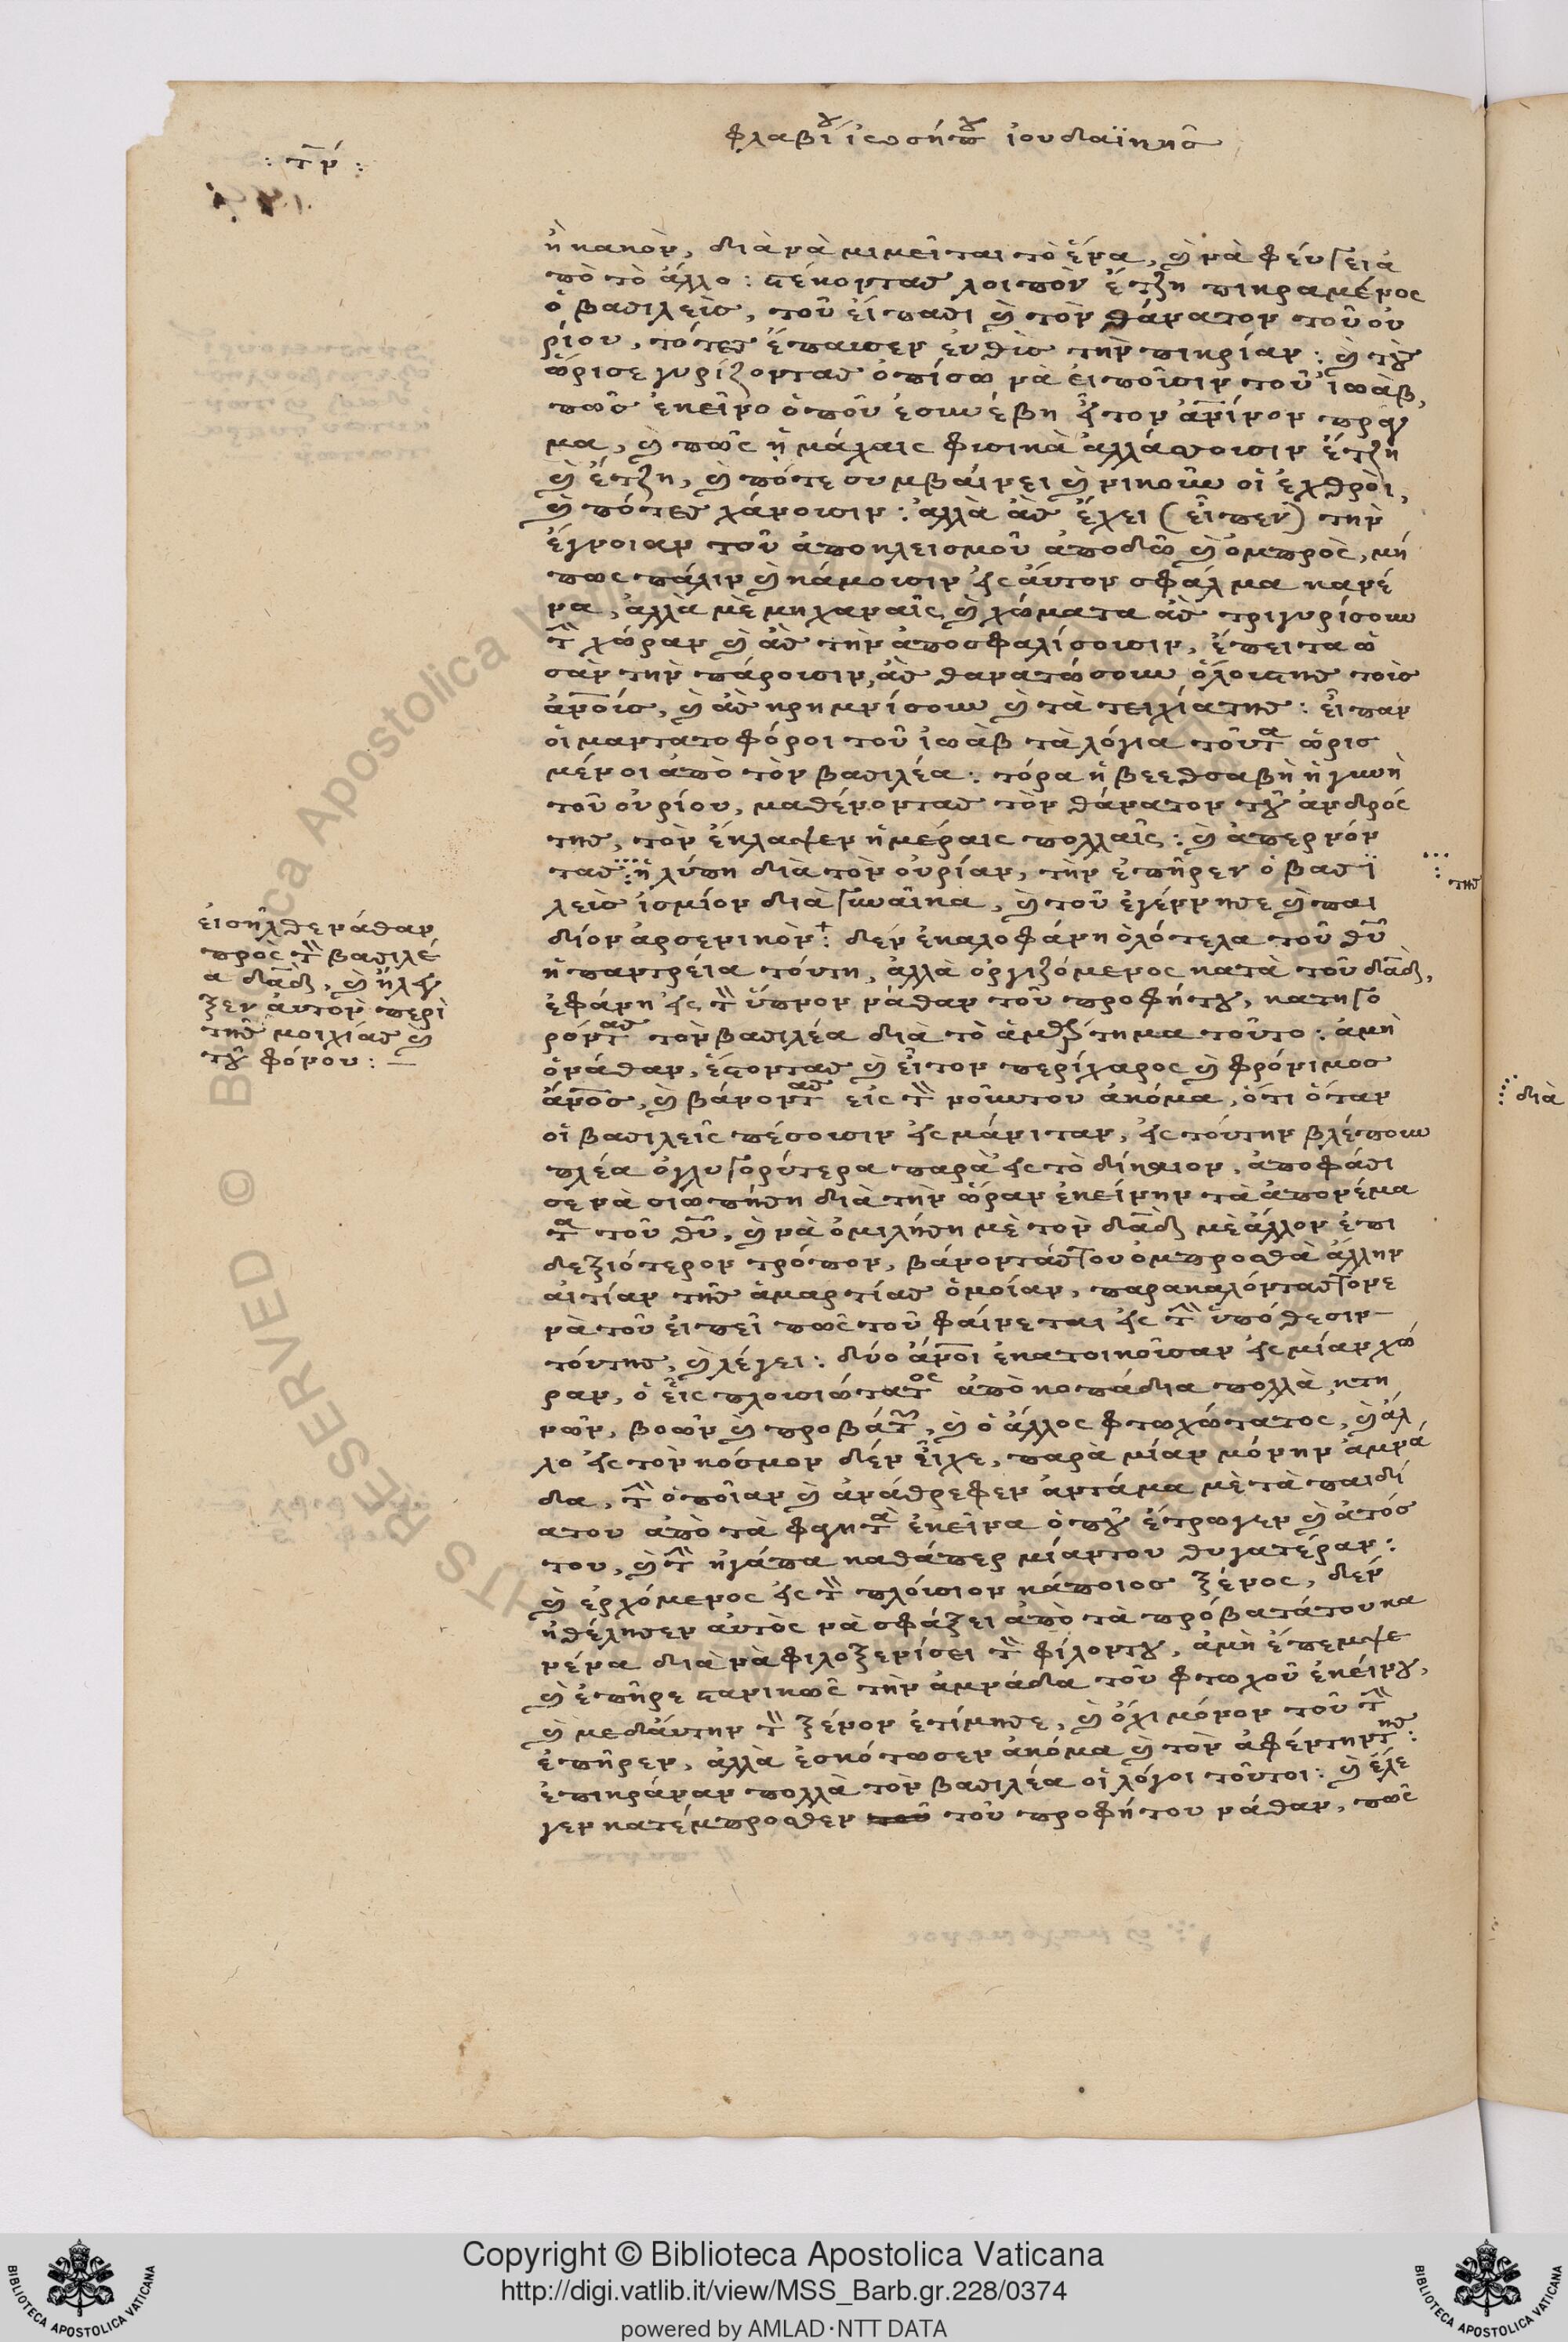 φλαβίου ἰωσήπου ἰουδαϊκῆς
: τν :
ἢ κακὸν, διὰ νὰ μιμεῖται τὸ ἕνα, καὶ νὰ φεύγει ἀ
πὸ τὸ ἄλλο: στέκοντας λοιπὸν ἔτζη πικραμένος
ὁ βασιλεὶς, τοῦ εἴπασι καὶ τὸν θάνατον τοῦ οὐ
ρίου, τότες ἔπαυσεν εὐθὶς τὴν πικρίαν: καὶ τοὺ
ὥρισε γυρίζοντας ὀπίσω νὰ εἰποῦσιν τοῦ ἰωὰβ,
πῶς ἐκεῖνο ὁποῦ ἐσυνέβη εἶτον ἀνίνον πράγ
μα, καὶ πῶς ἡ μάχαις φυσικὰ ἀλλάσσουσιν ἔτζη
καὶ ἔτζη, καὶ πότε συμβαίνει καὶ νικοῦν οἱ ἐχθροὶ,
καὶ πότες χάνουσιν: ἀλλὰ ἂς ἔχει (εἶπεν) τὴν
ἔγνοιαν τοῦ ἀποκλεισμοῦ ἀποδῶ καὶ ὀμπρὸς, μή
πως πάλιν καὶ κάμουσιν εἰς αὐτον σφάλμα κανέ
να, ἀλλὰ μὲ μηχαναῖς καὶ χώματα ἂς τριγυρίσουν
τὴν χώραν καὶ ἂς τὴν ἀποσφαλίσουσιν, ἔπειτα ὡ
σὰν τὴν πάρουσιν, ἂς θανατώσουν ὅλουςτης τοὶς
ἀνοὶς, καὶ ἂς κρημνίσουν καὶ τὰ τειχίατης: εἶπαν
οἱ μαντατοφόροι τοῦ ἰωὰβ τὰ λόγια τοῦτα ὡρισ
μένοι ἀπὸ τὸν βασιλέα: τόρα ἡ βεεθσαβὴ ἡ γυνὴ
τοῦ οὐρίου, μαθένοντας τὸν θάνατον τοῦ ἀνδρός
της, τὸν ἔκλαψεν ἡμέραις πολλαῖς: καὶ ἀπερνόν
τας ἡ λύπη διὰ τὸν οὐρίαν, τὴν ἐπῆρεν ὁ βασι
της
λεὶς ἰσμίον διὰ γυναῖκα, καὶ τοῦ ἐγέννησε καὶ παι
δίον ἀρσενικὸν: δὲν ἐκαλοφάνη ὁλότελα τοῦ θῦ
ἡ παντρεία τούτη, ἀλλὰ ὀργιζόμενος κατὰ τοῦ δαδ,
ἐφάνη εἰς τὸν ὕπνον νάθαν τοῦ προφήτου, κατηγο
ρόντας τὸν βασιλέα διὰ τὸ ἁμάρτημα τοῦτο: ἀμὴ
ὁ νάθαν, ἔστοντας καὶ εἶτον περίχαρος καὶ φρόνιμος
ἄνος, καὶ βάνοντας εἰς τὸν νοῦντου ἀκόμα, ὅτι ὅταν
διὰ
οἱ βασιλεῖς πέσουσιν εἰς μάνιταν, εἰς τούτην βλέπουν
πλέα ὀγλυγορύτερα παρὰ εἰς τὸ δίκαιον, ἀποφάσι
σε νὰ σιωπήση διὰ τὴν ὥραν ἐκείνην τὰ ἀπονέμα
τα τοῦ θῦ, καὶ νὰ ὁμιλήση μὲ τὸν δαδ μὲ ἄλλον ἐπι
δεξιότερον τρόπον, βάνοντάςτου ὀμπροσθὰ ἄλλην
αἰτίαν τῆς ἁμαρτίας ὁμοίαν, παρακαλόντας τόνε
νὰ τοῦ εἰπεῖ πῶς τοῦ φαίνεται εἰς τὴν ὑπόθεσιν
τούτης, καὶ λέγει: δύο ἄνοι ἐκατοικοῦσαν εἰς μίαν χώ
ραν, ὁ εἷς πλουσιώτατος ἀπὸ κοπάδια πολλὰ, κτη
νῶν, βοῶν καὶ προβάτων, καὶ ὁ ἄλλος φτωχώτατος, καὶ ἄλ
λο εἰς τὸν κόσμον δὲν εἶχε, παρὰ μίαν μόνην ἀμνά
δα, τὴν ὁποίαν καὶ ἀνάθρεφεν ἀντάμα μὲ τὰ παιδί
ατου ἀπὸ τὰ φαητὰ ἐκεῖνα ὁποῦ ἔτρωγεν καὶ ἀτός
του, καὶ τὴν ἠγάπα καθάπερ μίαντου θυγατέραν:
καὶ ἐρχόμενος εἰς τὸν πλούσιον κάποιος ξένος, δὲν
ἠθέλησεν αὐτὸς νὰ σφάξει ἀπὸ τὰ πρόβατάτου κα
νένα διὰ νὰ φιλοξενίσει τὸν φίλοντου, ἀμὴ ἔπεμψε
καὶ ἐπῆρε στανικῶς τὴν ἀμνάδα τοῦ φτωχοῦ ἐκείνου,
καὶ μεδαύτην τὸν ξένον ἐτίμησε, καὶ ὄχι μόνον τοῦ τὴν
ἐπῆρεν, ἀλλὰ ἐσκότωσεν ἀκόμα καὶ τὸν ἀφέντηντης:
ἐπικράναν πολλὰ τὸν βασιλέα οἱ λόγοι τοῦτοι: καὶ ἔλε
γεν κατέμπροσθεν τοῦ τοῦ προφήτου νάθαν, πῶς
εἰσῆλθε νάθαν
πρὸς τὸν βασιλέ
α δαδ, καὶ ἤλεγ
ξεν αὐτὸν περὶ
τῆς μοιχίας καὶ
τοῦ φόνου: —
BIBLIOTECA APOSTOLICA VATICANA
Copyright © Biblioteca Apostolica Vaticana
http://digi.vatlib.it/view/MSS_Barb.gr.228/0374
powered by AMLAD·NTT DATA
BIBLIOTECA APOSTOLICA VATICANA